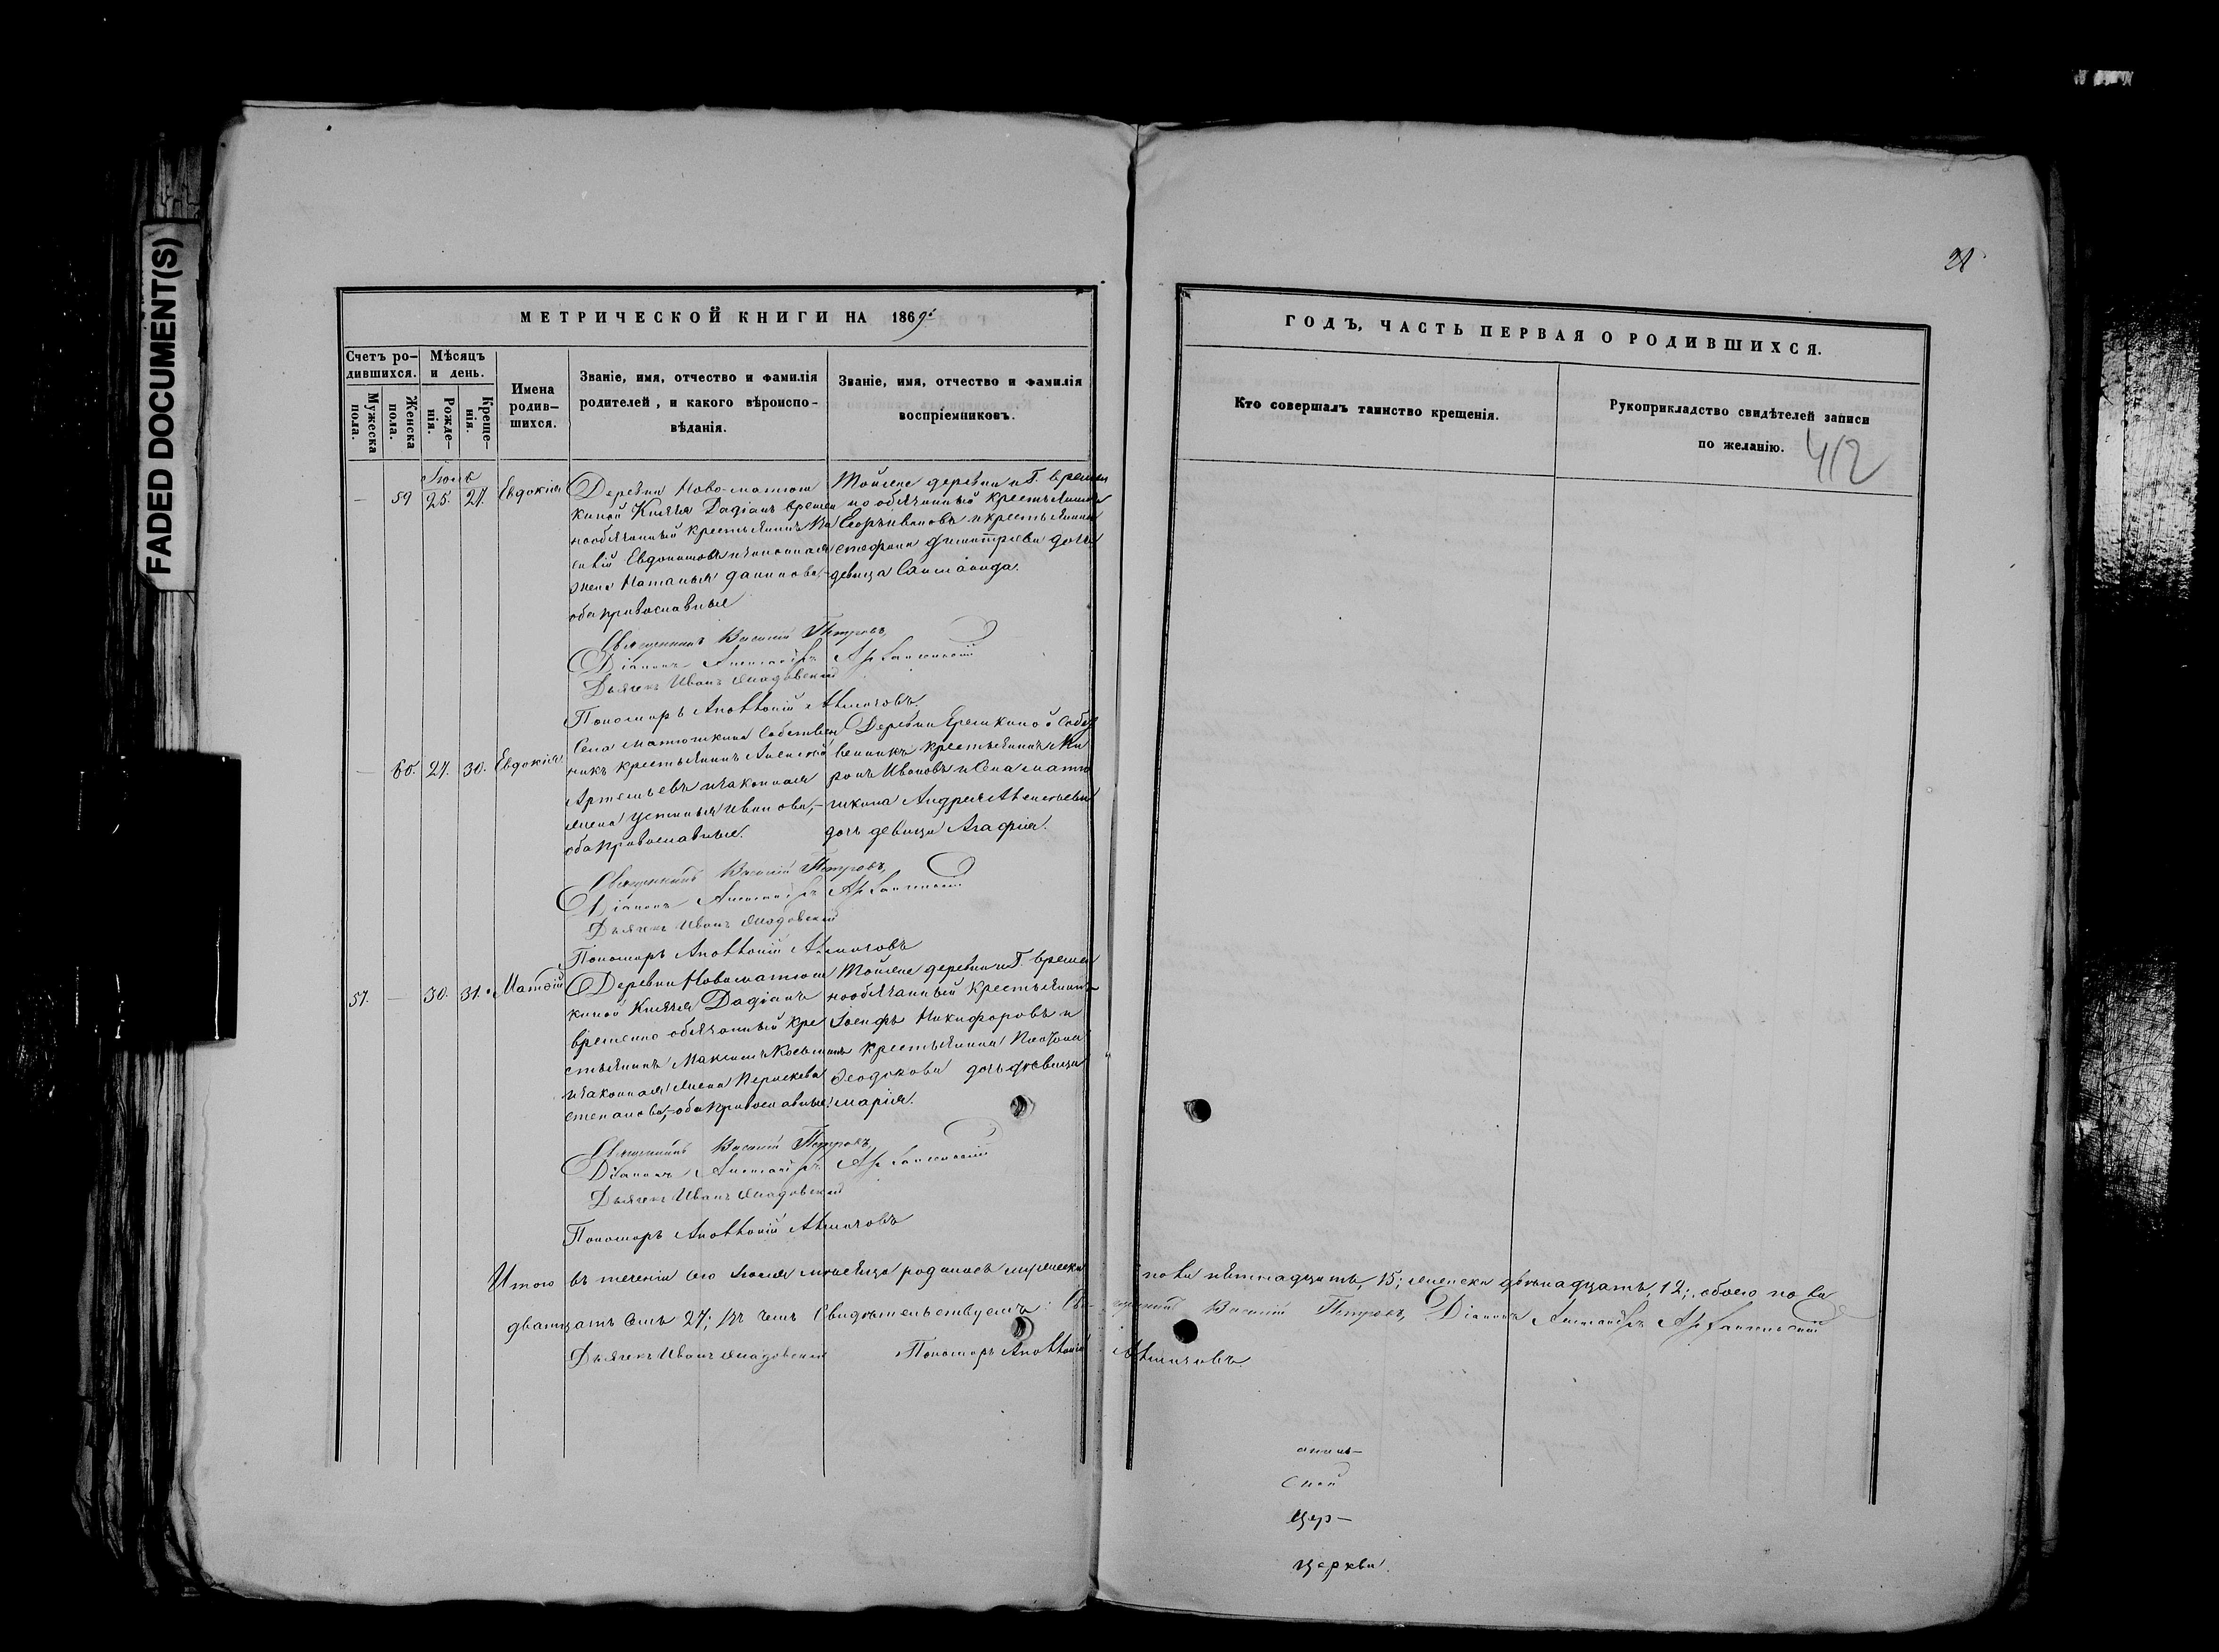 FADED DOCUMENT(S)
28
МЕТРИЧЕСКОЙ КНИГИ НА 1869й
ГОДЪ, ЧАСТЬ ПЕРВАЯ О РОДИВШИХСЯ.
Счетъ ро-
дившихся.
Мѣсяцъ
и день.
Мужеска
пола.
Женска
пола.
Рожде-
нія.
Креще-
нія.
Имена
родив-
шихся.
Званіе, имя, отчество и фамилія
родителей, и какого вѣроиспо-
вѣданія.
Званіе, имя, отчество и фамилія
воспріемниковъ.
Кто совершалъ таинство крещенія.
Рукоприкладство свидѣтелей записи
по желанію.
412
— 59 25. 27. Евдокія
Деревни Ново-матюш
киной Князя Дадіанъ времен
нообязанный крестьянинъ Ва
силій Евдокимовъ и законная
жена Наталья Данилова,-
оба православные
Тойже деревни и Г. времен
но обязанный крестьянинъ
Егоръ Ивановъ и крестьянина
Стефана Димитріева дочь
девица
Священникъ Василій Петровъ,
Діаконъ Александръ Архангельскій
Дьячекъ Иванъ
Пономарь
— 60. 27. 30. Евдокія
Села Матюшкина Собствен
никъ крестьянинъ Алексей
Артемьевъ и законная
жена Устинья Иванова,-
оба православные.
Деревни Ерешкиной Собст
венникъ крестьянинъ Ми
ронъ Ивановъ и Села матю
шкина Андрея
дочь девица Агафія.
Священникъ Василій Петровъ,
Діаконъ Александръ Архангельскій
Дьячекъ Иванъ
Пономарь
57. — 30. 31. Матѳій
Деревни Новоматюш
киной Князя Дадіанъ
временно обязанный кре
стьянинъ Максимъ Косьминъ
и законная жена Параскева
Степанова,- оба православные.
Тойже деревни и Г времен
нообязанный крестьянинъ
Іосифъ Никифоровъ и
крестьянина
дочь девица
Марія.
Священникъ Василій Петровъ,
Діаконъ Александръ Архангельскій
Дьячекъ Иванъ
Пономарь
Итого въ теченіи сего Іюля мѣсяца родилось мужеска пола пятнадцать, 15; женска двенадцать, 12; обоего пола
двадцать семь 27; въ чемъ Свидѣтельствуемъ: Священникъ Василій Петровъ, Діаконъ Александръ Архангельскій
Дьячекъ Иванъ Пономарь
ской
Цер-
Церкви.